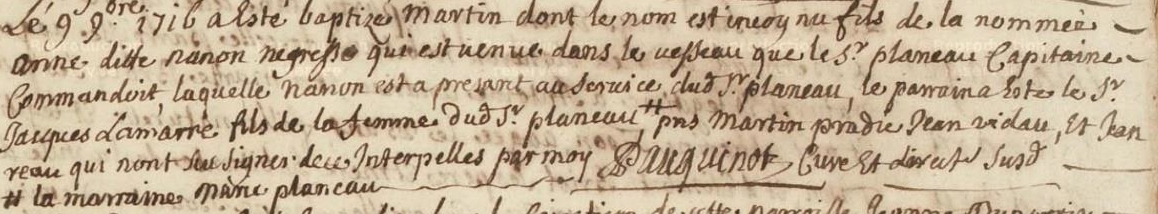 Le 9 9.bre 1716 a Esté baptize Martin dont le nom est incoynu fils de la nommée
anne ditte nanon negresse qui est venue dans le vesseau que le Sr planeau Capitaine
Commandoit, laquelle nanon est a presant au service dud Sr planeau, le parrain a Este le Sr
Jacques Lamarre fils de la femme dud Sr planeau, # pns Martin pradie Jean vidau, Et Jean
reau qui nont su signer de ce Interpelles par moy Pauquinot Curé Et direct.r susd
# la marraine planeau
de cette parroisse Jeanne